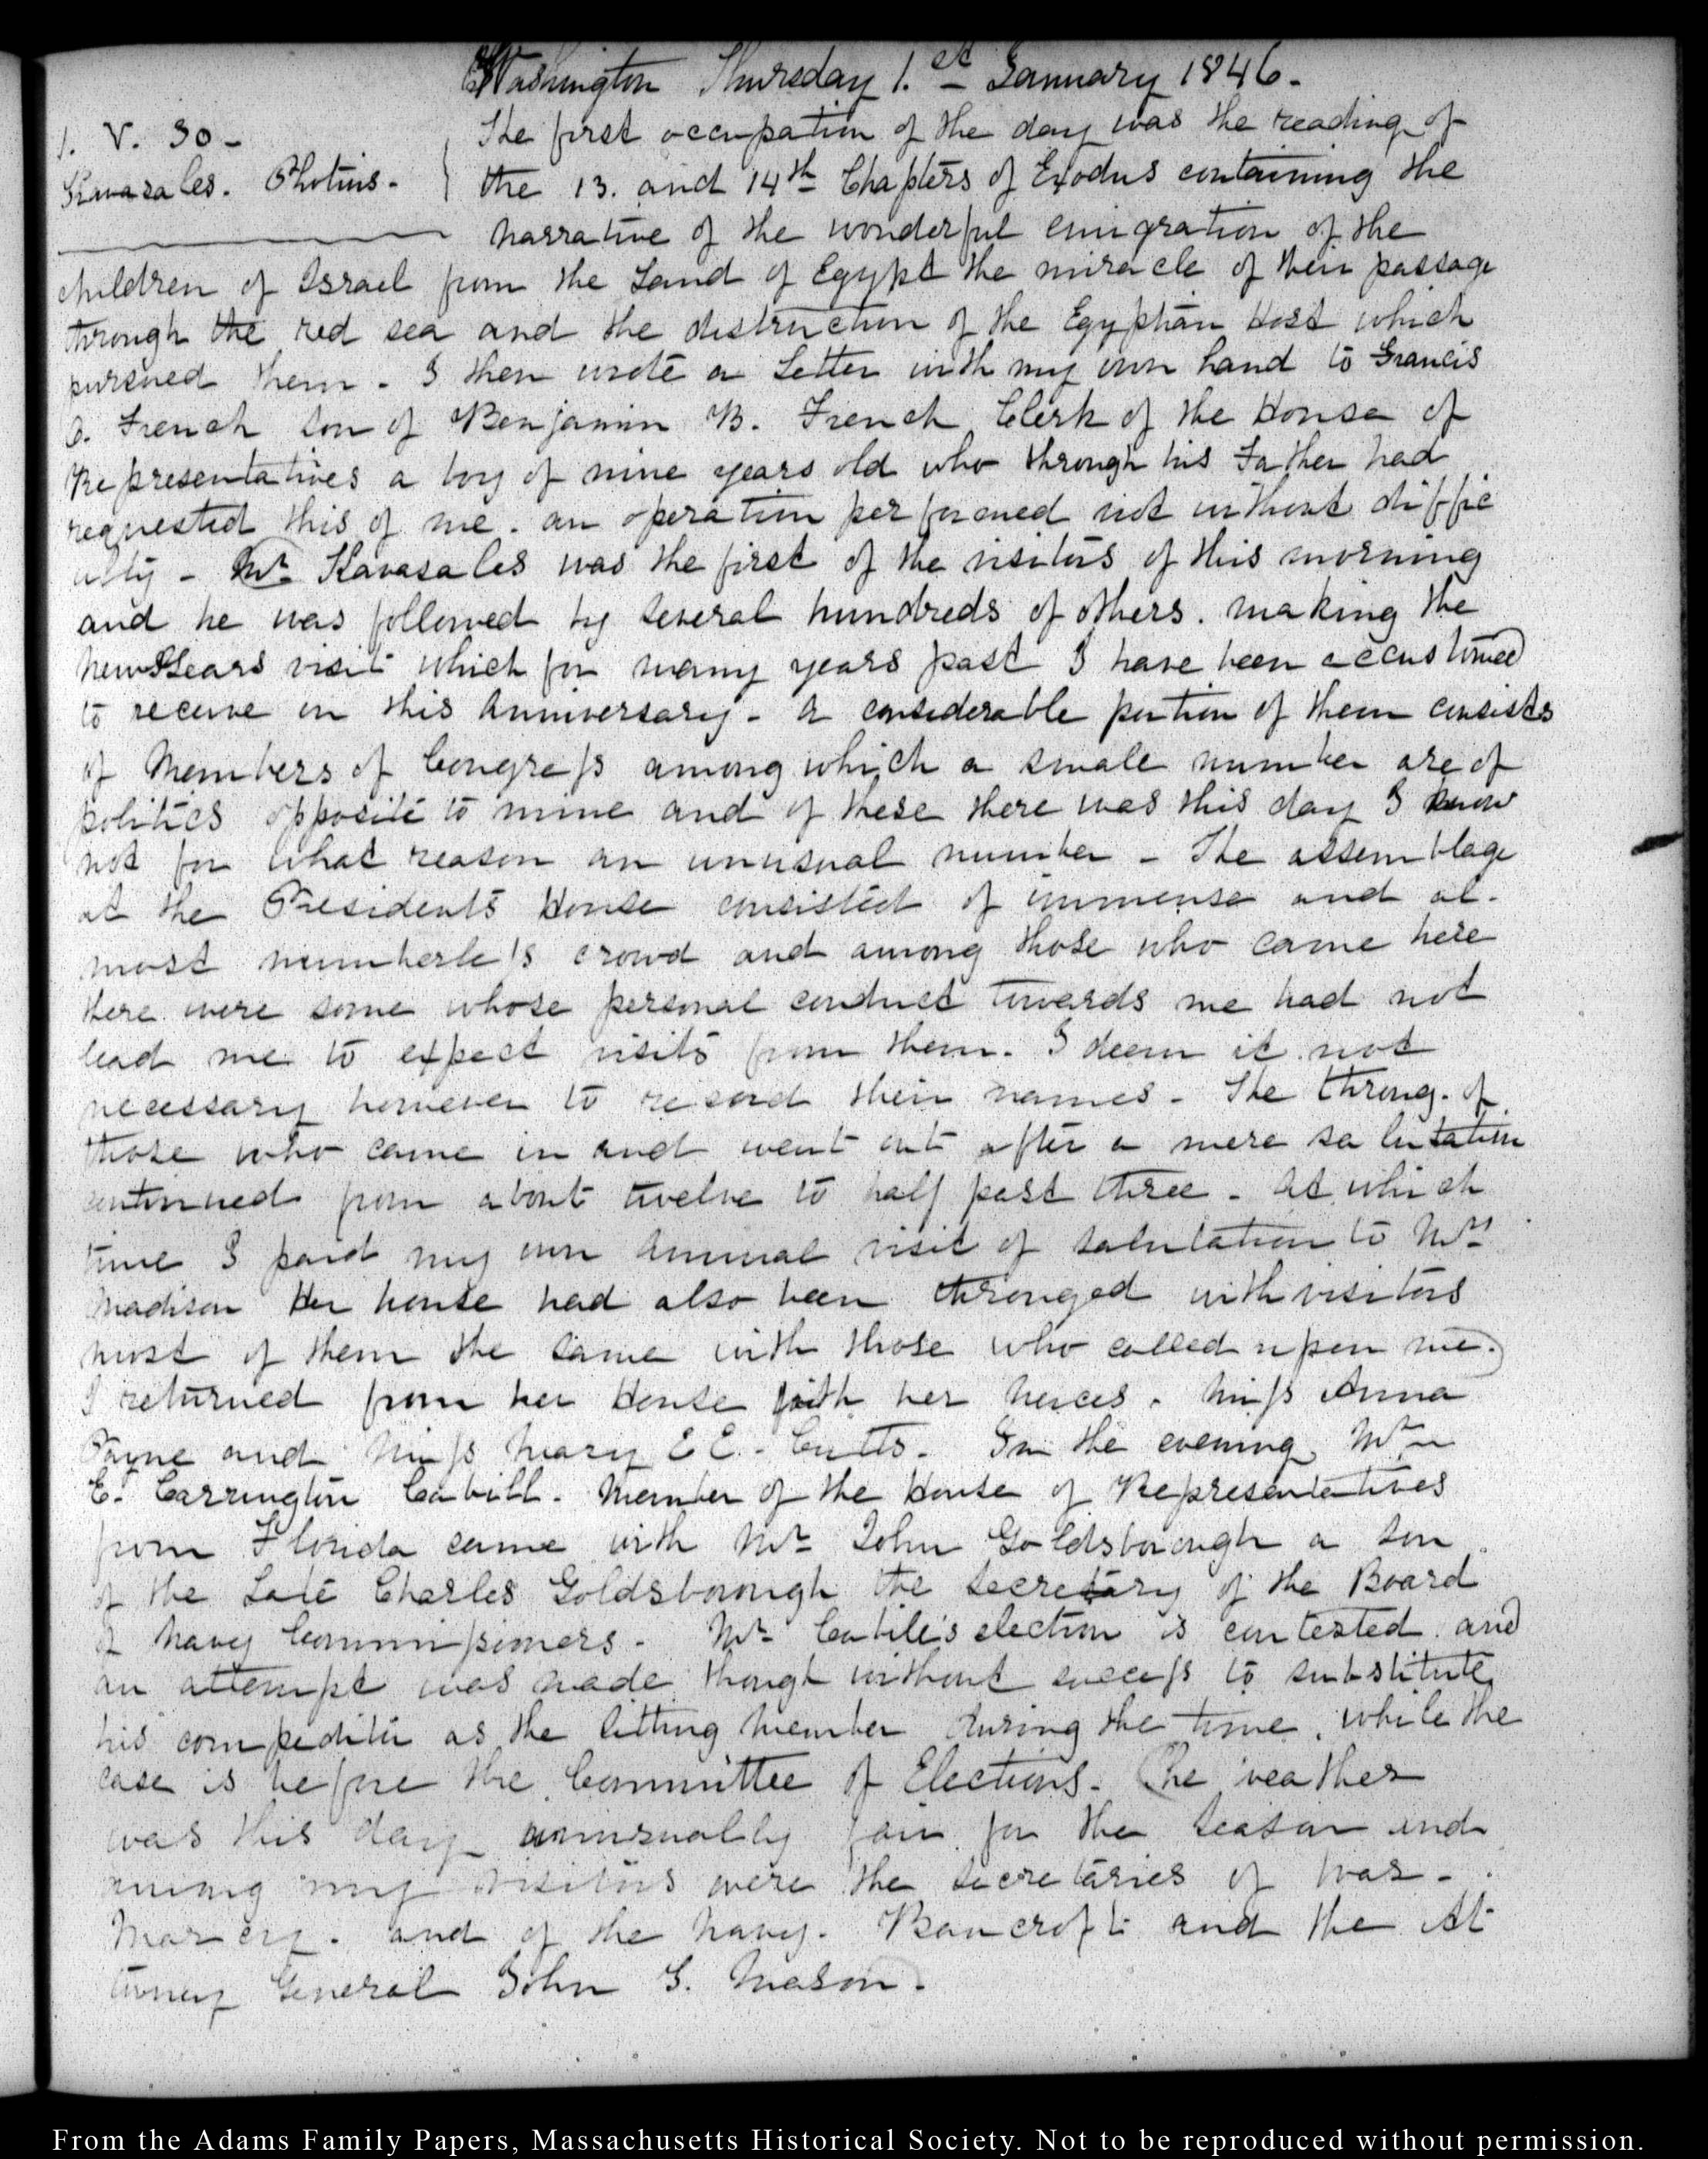 Washington Thursday 1.st January 1846.
1. V. 30 -
Kavasales. Photius.
The first occupation of the day was the reading of
the 13. and 14th Chapters of Exodus containing the
narrative of the wonderful emigration of the
children of Israel from the Land of Egypt the miracle of their passage
through the red sea and the distruction of the Egyptian Host which
pursued them. I then wrote a Letter with my own hand to Francis
O. French son of Benjamin B. French Clerk of the House of
Representatives a boy of nine years old who through his Father had
requested this of me. an operation performed not without diffic
ulty - Mr Kavasales was the first of the visitors of this morning
and he was followed by several hundreds of others. making the
New Years visit which for many years past I have been accustomed
to receive on this Anniversary - a considerable portion of them consists
of Members of Congress among which a small number are of
politics opposite to mine and of these there was this day I know
not for what reason an unusual number - The assemblage
at the Presidents House consisted of immense and al-
most numberless crowd and among those who came here
there were some whose personal conduct towards me had not
lead me to expect visits from them. I deem it not
necessary however to record their names - The throng. of
those who came in and went out after a mere salutation
continued from about twelve to half past three - at which
time I paid my own annual visit of salutation to Mrs
Madison Her house had also been thronged with visitors
most of them the same with those who called upon me.
I returned from her House with her neices. Miss Anna
Payne and Miss Mary E E. Cutts. In the evening Mr
E. Carrington Cabill. Member of the House of Representatives
from Florida came with Mr John Goldsborough a son
of the Late Charles Goldsborough the secretary of the Board
of Navy Commissioners - Mr Cabile's election is contested and
an attempt was made though without success to substitute
his compeditor as the sitting Member during the time, while the
case is before the Committee of Elections. The weather
was this day unusually fair for the season and
among my visitors were the secretaries of War -
Marcy. and of the Navy. Bancroft and the At
torney General John G. Mason.
From the Adams Family Papers, Massachusetts Historical Society. Not to be reproduced without permission.